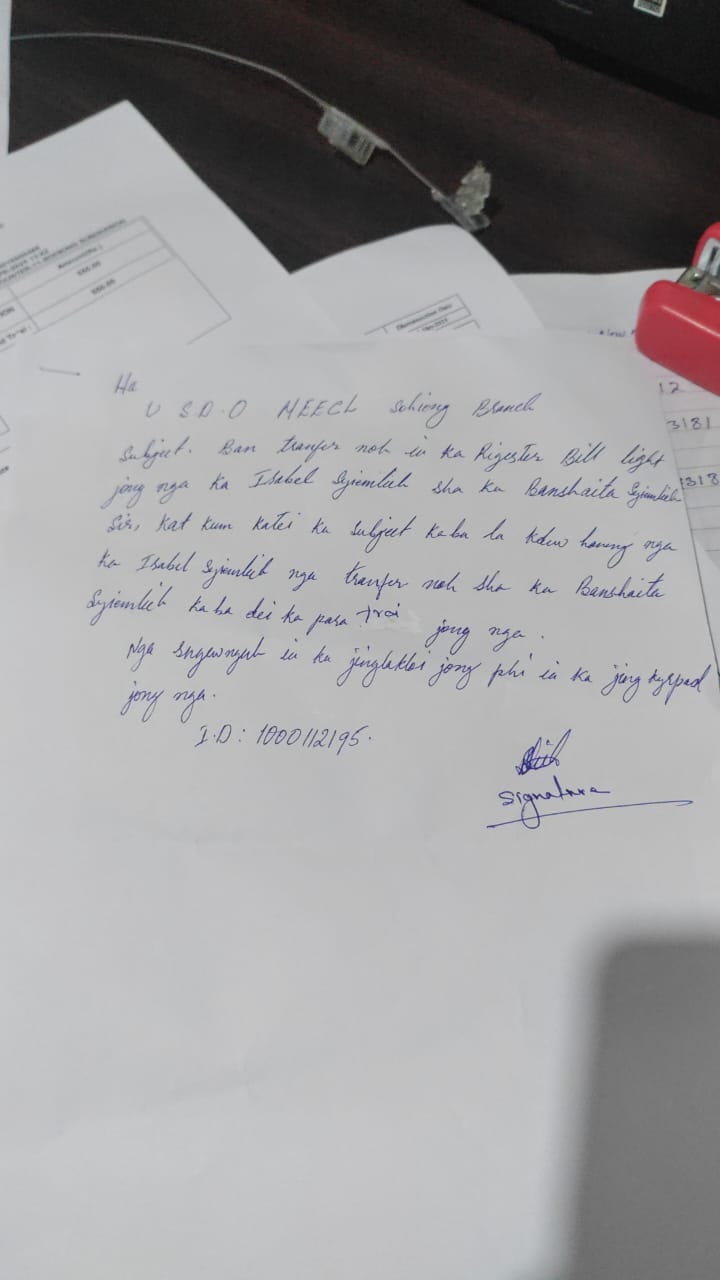 Amount(Rs.)
550.00
550.00
Ha
U S.D.O MEECL Sohiong Branch
Subject. Ban tranfer noh ia ka Rigester Bill light
jong nga ka Isabel Syiemlieh sha ka Banshaita Syiemlieh
Sir, Kat kum katei ka subject kaba la kdew haneng nga
ka Isabel Syiemlieh nga tranfer noh sha ka Banshaita
Syiemlieh kaba dei ka para trai jong nga.
Nga sngewnguh ia ka jinglaktoi jong phi ia ka jing kyrpad
jong nga.
I.D: 1000112195.
Signature
12
3181
3181